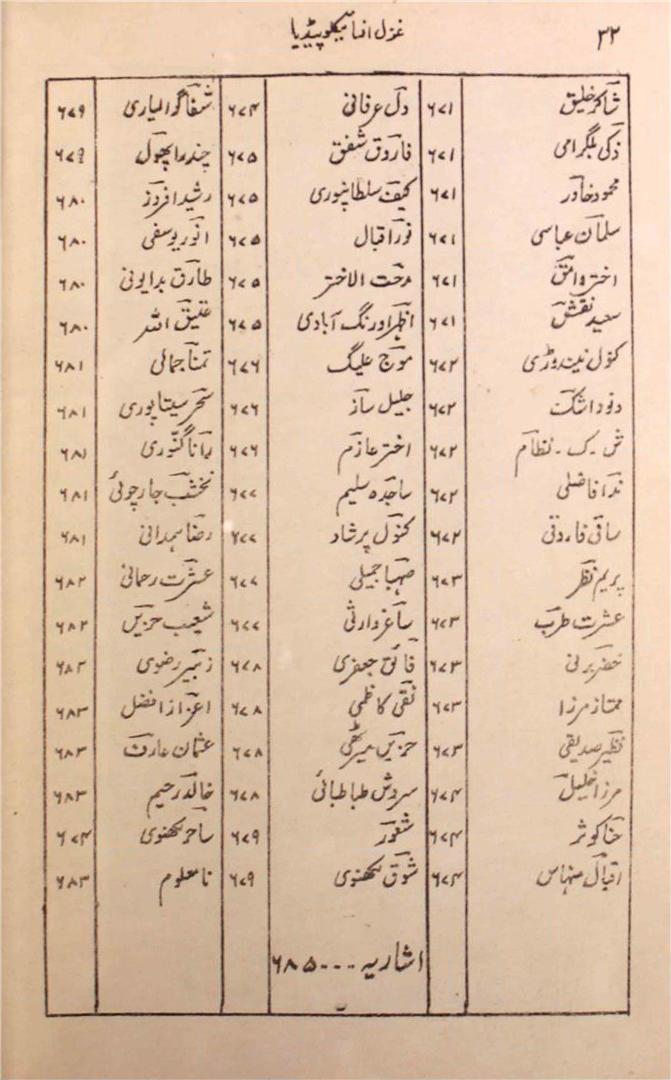 ۳۲ غزل انسائیکلوپیڈیا
شاکر خلیق ۶۷۱ دل عرفانی ۶۷۴ شفا گوالیاری ۶۷۹
ذکی بلگرامی ۶۷۱ فاروق شفق ۶۷۵ چندرا پھول ۶۷۹
محمود خاور ۶۷۱ کیف سلطانپوری ۶۷۵ رشید افروز ۶۸۰
سلمان عباسی ۶۷۱ نور اقبال ۶۷۵ انور یوسفی ۶۸۰
اختر وامق ۶۷۱ مدحت الاختر ۶۷۵ طارق بدایونی ۶۸۰
سعید نقش ۶۷۱ اظہر اورنگ آبادی ۶۷۵ عتیق اللہ ۶۸۰
کنول نیندوڑی ۶۷۲ موج علیگ ۶۷۶ تمنا جمالی ۶۸۱
دنود اشک ۶۷۲ جلیل ساز ۶۷۶ سحر سیتاپوری ۶۸۱
ش۔ک۔نظام ۶۷۲ اختر عازم ۶۷۶ ۶۸۱
ندا فاضلی ۶۷۲ ساجدہ سلیم ۶۷۷ نخشب جارچوئی ۶۸۱
ساقی فاروقی ۶۷۲ کنول پرشاد ۶۷۷ رضا ہمدانی ۶۸۱
پریم نظر ۶۷۳ صہبا جمیلی ۶۷۷ عشرت رحمانی ۶۸۲
عشرت طرب ۶۷۳ ساغر وارثی ۶۷۷ شعیب حزیں ۶۸۲
خضر برنی ۶۷۳ فائق جعفری ۶۷۸ زبیر رضوی ۶۸۲
ممتاز مرزا ۶۷۳ نقی کاظمی ۶۷۸ اعزاز افضل ۶۸۳
نظیر صدیقی ۶۷۳ حزیں میرٹھی ۶۷۸ عثمان عارف ۶۸۳
مرزا خلیل ۶۷۴ سروش طباطبائی ۶۷۸ خالد رحیم ۶۸۳
حنا کوثر ۶۷۴ شعور ۶۷۹ ساحر لکھنوی ۶۷۴
اقبال منہاس ۶۷۴ شوق لکھنوی ۶۷۹ نامعلوم ۶۸۳
اشاریہ ۔۔۔ ۶۸۵